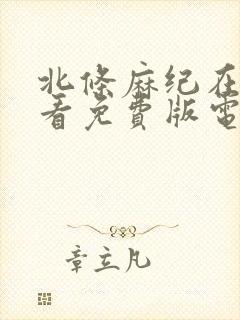 北條麻纪在
看免費版電
章立凡